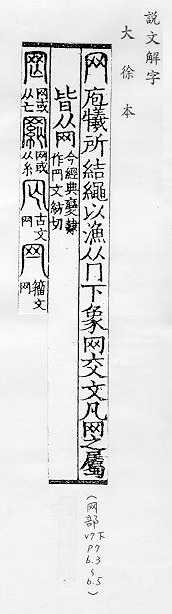 説文解字
大徐本
网 庖犧所結繩以漁从冂下象网交文凡网之屬
皆从网 今經典變隸作𦉪文紡切
网或从亡
网或从糸
古文网
籀文网
(网部 v7下 p.7 b.3 ~ b.5)